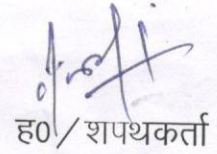 ह0/ शपथकर्ता